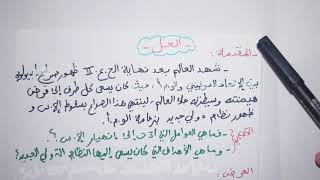 - الحل -
- المقدمة:
- شهد العالم بعد نهاية الح.ع.II ظهور صراع إيديولوجي
بين الإتحاد السوفييتي والو.م.أ، حيث كان يسعى كل طرف إلى فرض
هيمنته وسيطرته على العالم، لينتهي هذا الصراع بسقوط الإ.س و
ظهور نظام دولي جديد بزعامة الو.م.أ.
فما هي العوامل التي أدت إلى انهيار الإ.س؟
وما هي الأهداف التي كان يسعى إليها النظام الدولي الجديد؟
العرض: